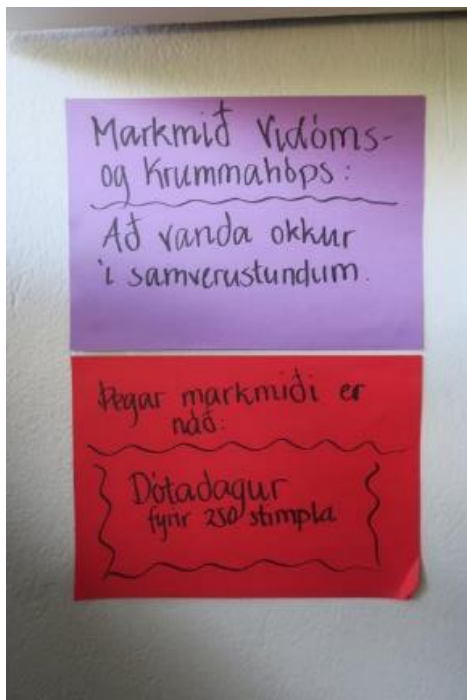 Markmið Vidóms-
og Krummahóps:
Að vanda okkur
í samverustundum.
Þegar markmiði er
náð:
Dótadagur
fyrir 250 stimpla